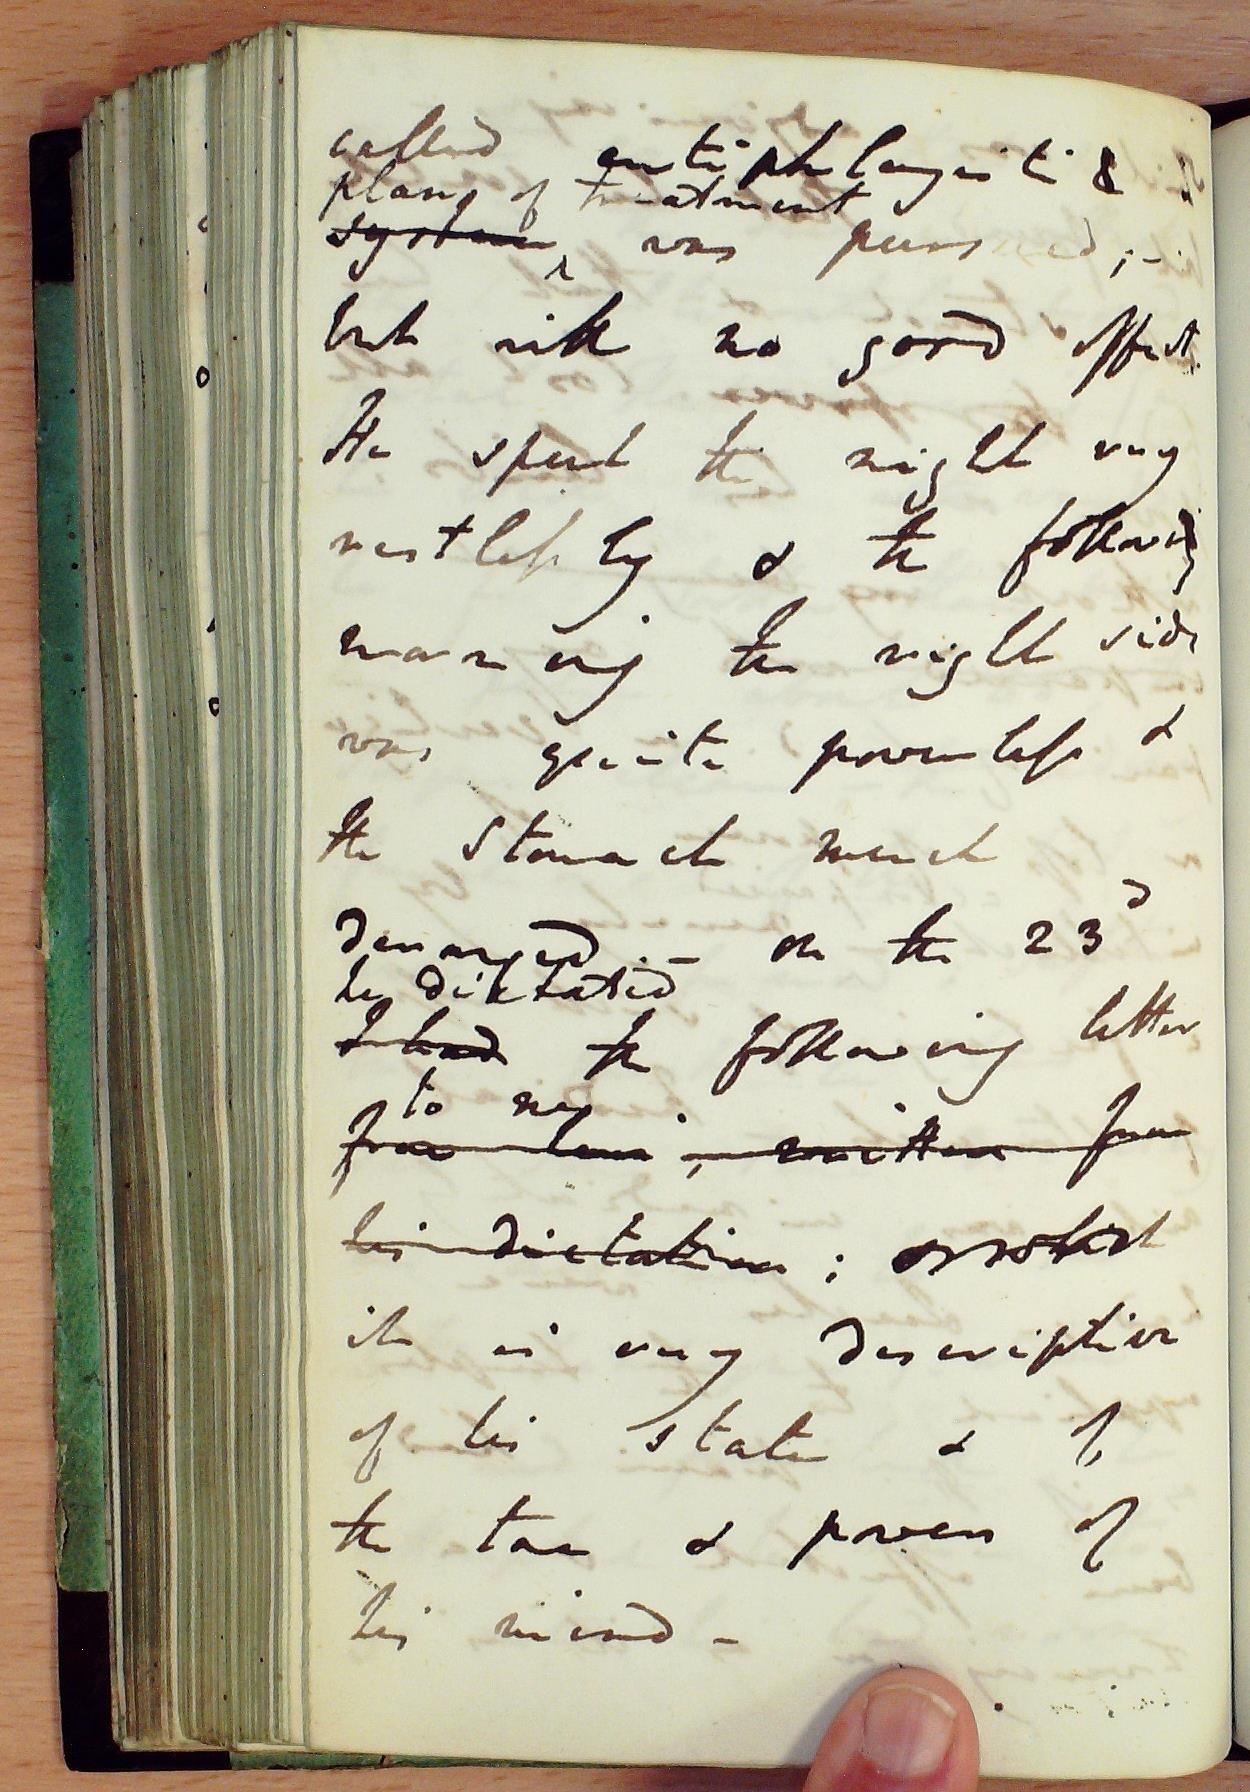 called antiphlogistic &
plans of treatment
system was pursued;-
but with no good effect.
He spent the night very
restlessly & the following
morning the right side
was quite powerless &
the stomach much
deranged. – on the 23d
he dictated
I had the following letter
to me
from him, written from
his dictation;
it is very descriptive
of his state & of
the tone & powers of
his mind –